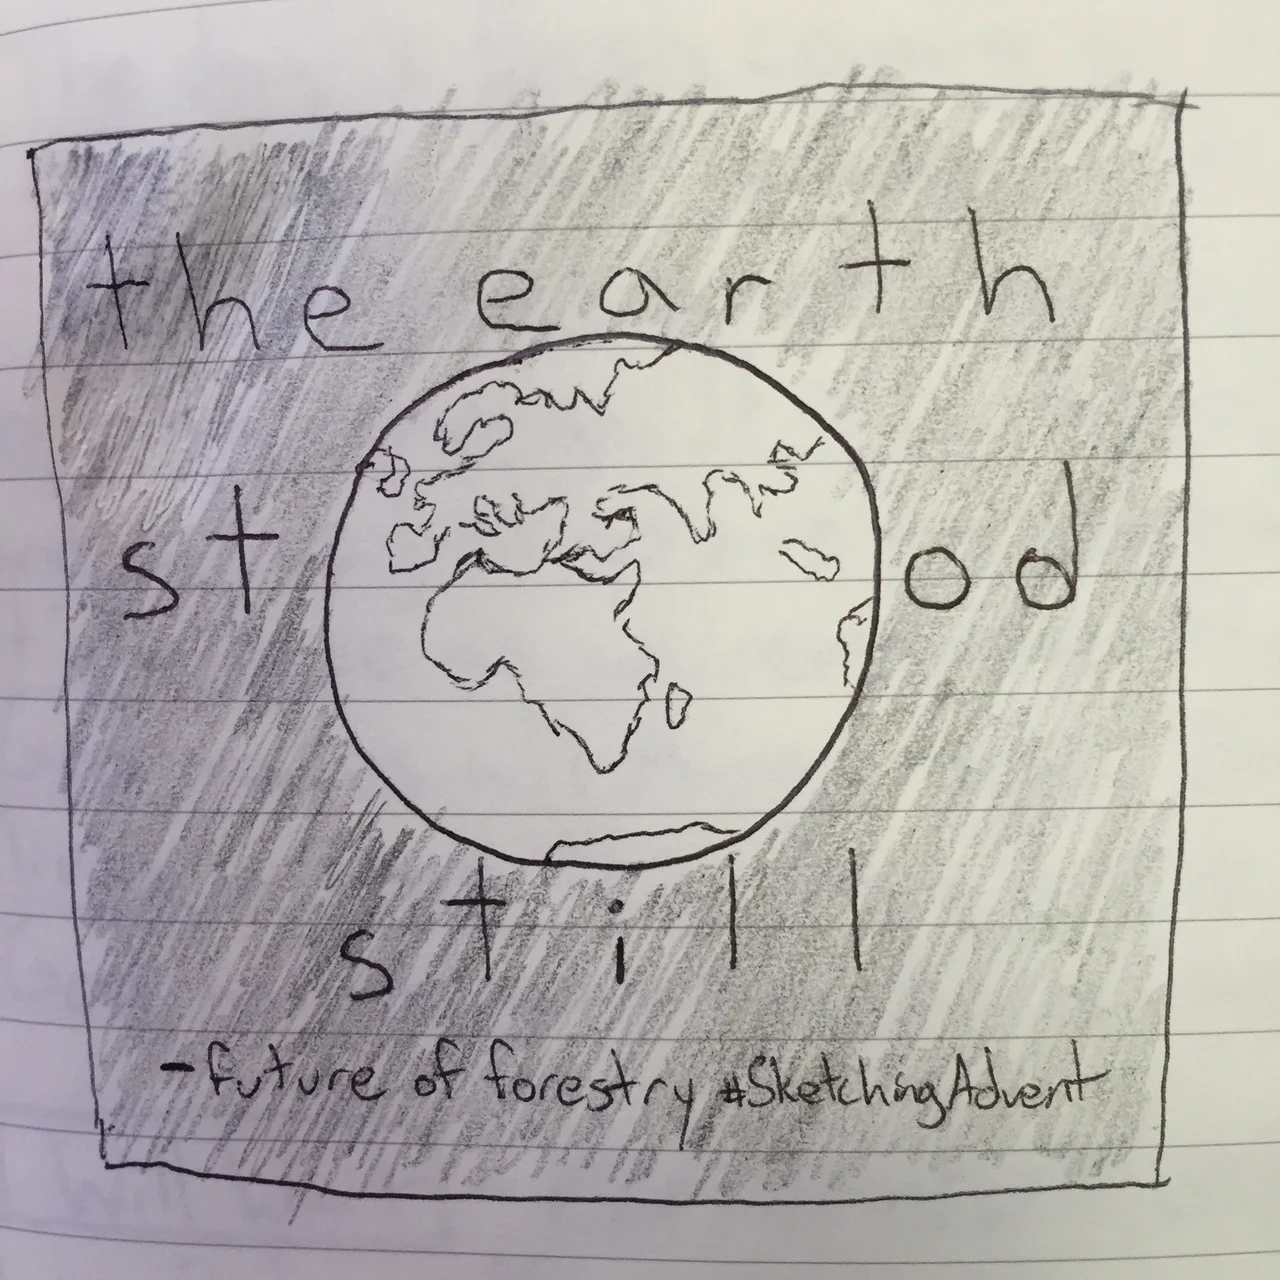 the earth
st od
still
-future of forestry #SketchingAdvent